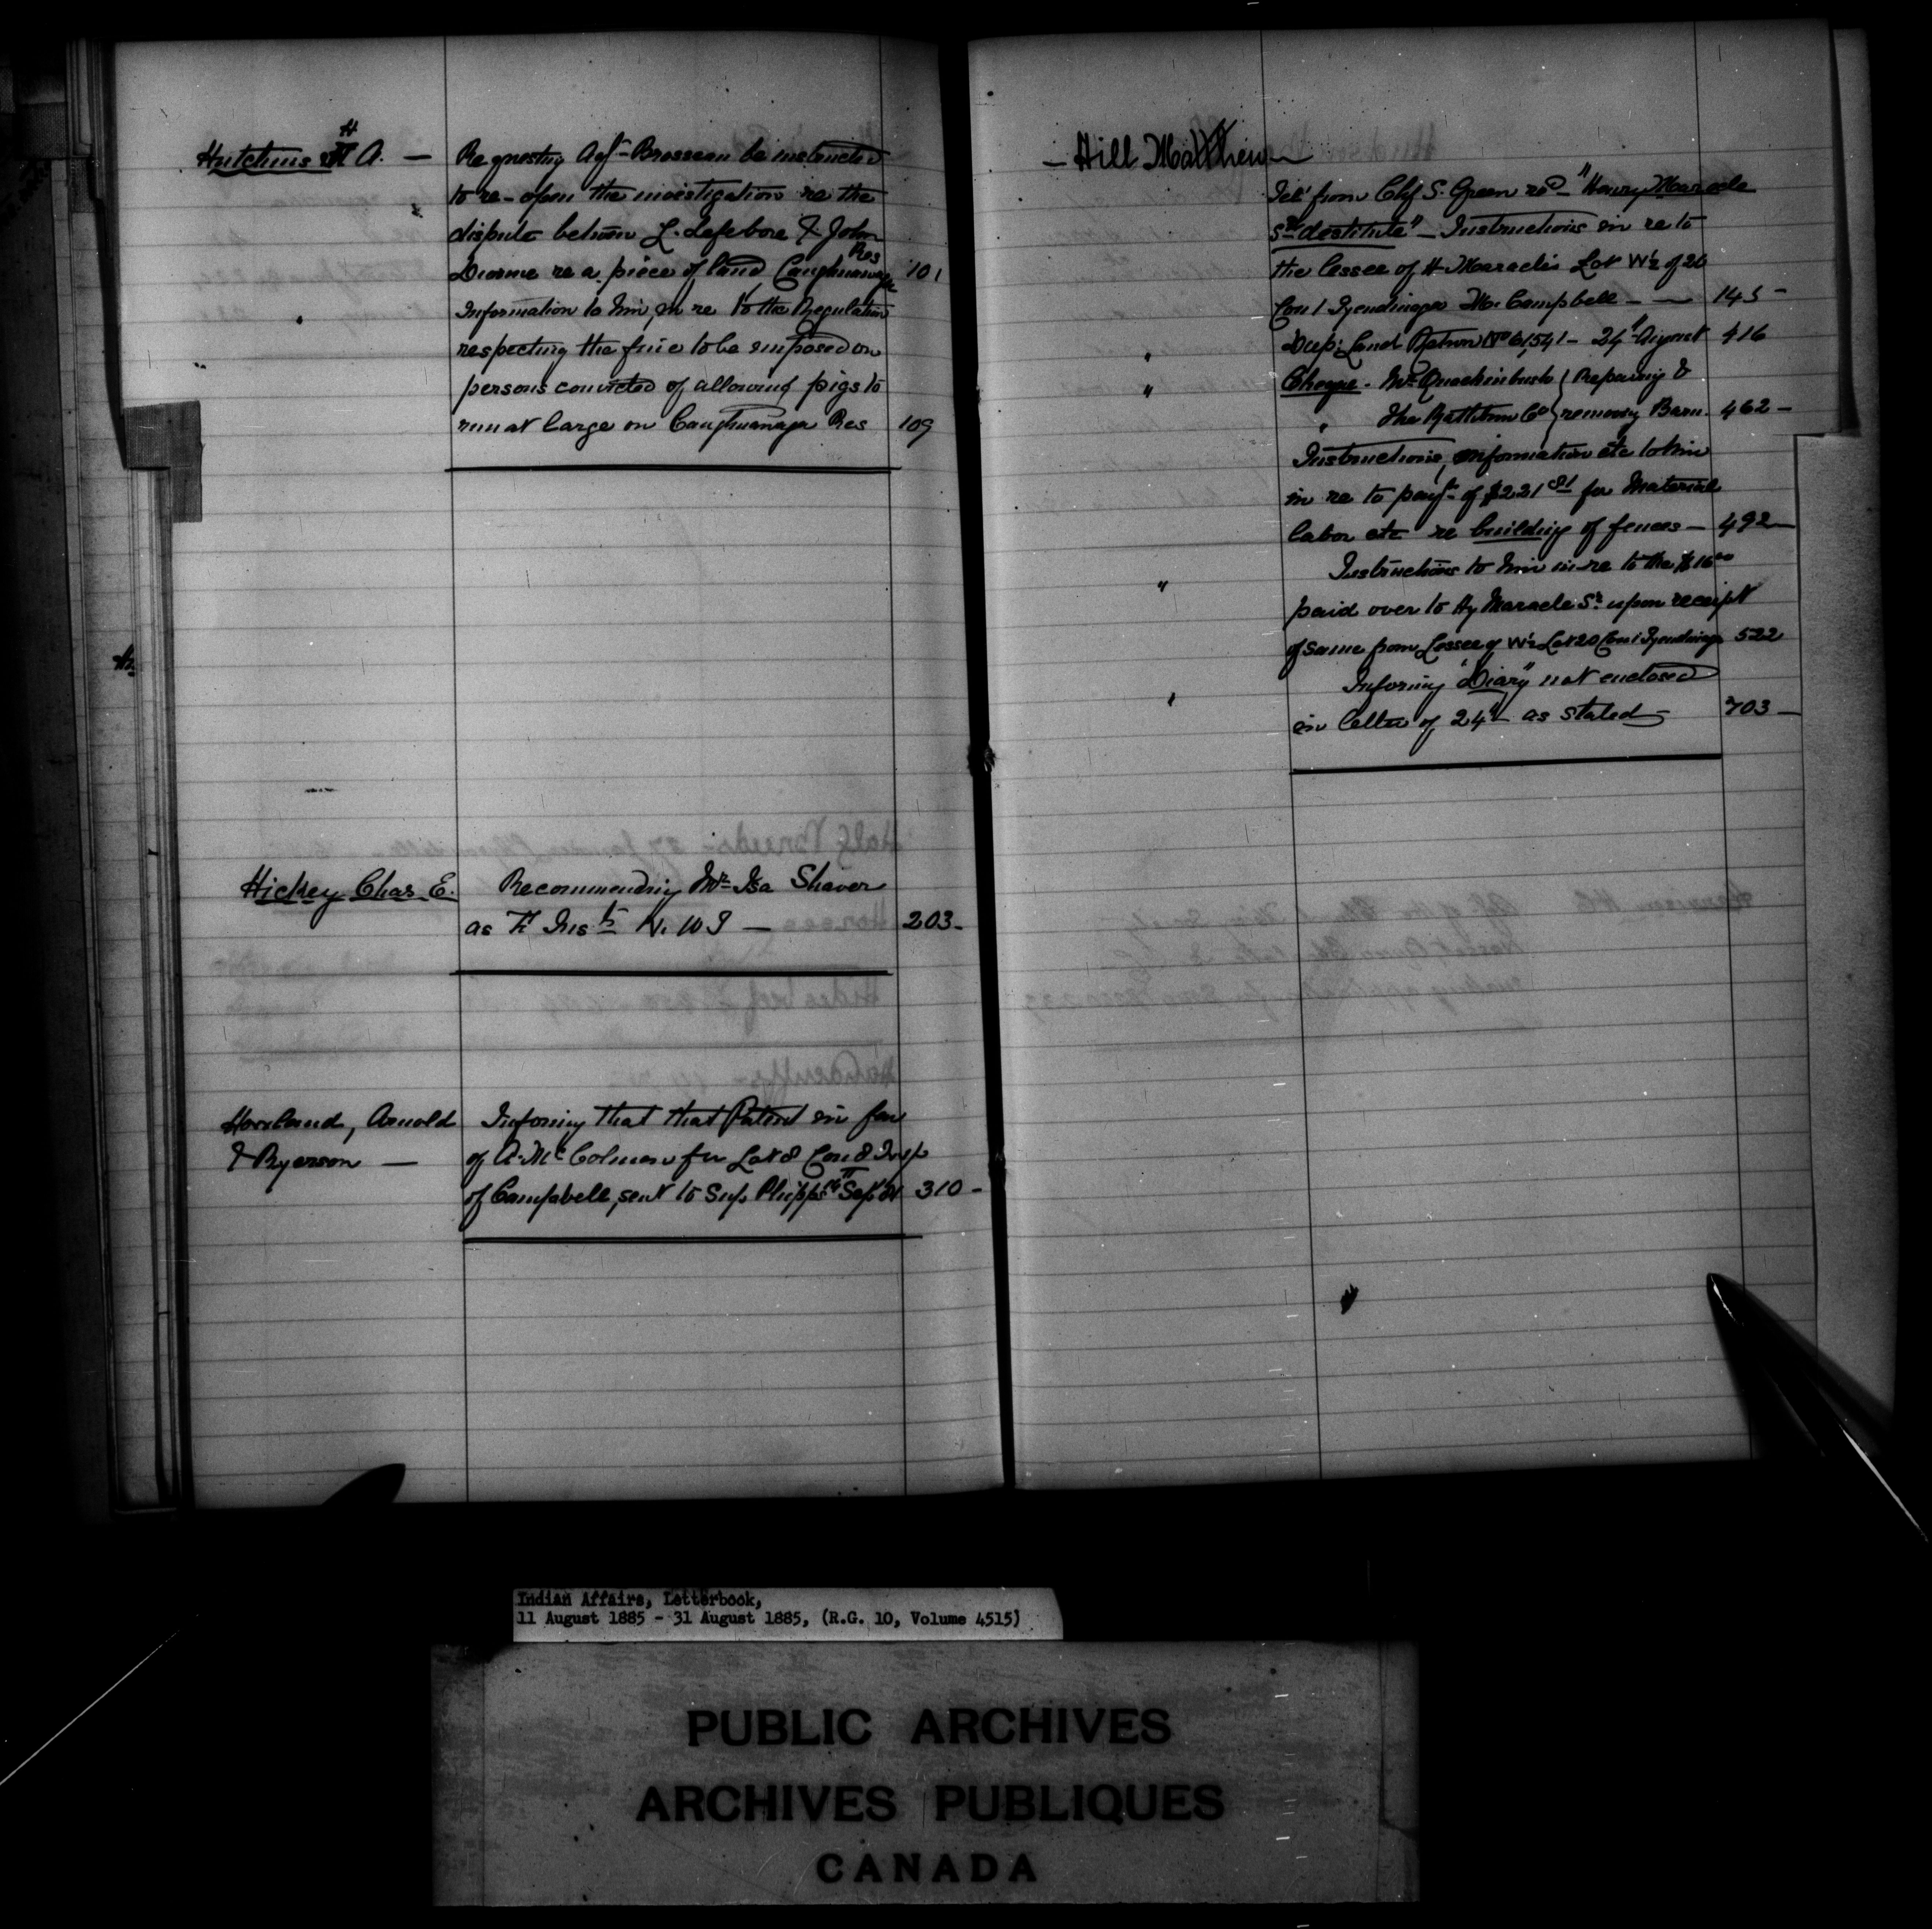 Hutchins H A. — Requesting Agt Brosseau be instructed
to re-open the investigation re the
dispute between L. Lefebvre & John
Res
Diome re a piece of land, Caughnawaga 101
" Information to him, in re to the Regulation
respecting the fine to be imposed on
persons convicted of allowing pigs to
run at large on Caughnawaga Res 109
Hickey Chas. E. Recommending Mr Isa Shaver
as F Inst N. W T — 203 -
Hovland, Arnold Informing that that Patent in fav
& Ryerson — of A. McColman for Lot 8 Con 8 Tnsp
of Campbell, sent to Sup Phipps Sep 310 -
— Hill Matthew
Tel from Chf S. Green red - "Henry Maracle
Sr destitute" - Instructions in re to
the lessee of H. Maracle's Lot W½ of 20
Con 1 Tyendinaga Mr. Campbell — — 145 -
" Dup: Land Return No 61,541 - 24th August 416
" Cheque - Mr Quackinbush } Repairing &
" The Rathbun Co } removing Barn. 462 -
Instructions, information etc to him
in re to payt of $221 for Material
labor etc re building of fences — 492 —
" Instructions to him in re to the $16 00
paid over to Hy Maracle Sr. upon receipt
of same from Lessee of W½ Lot 20 Con 1 Tyendinaga 522
" Informing "Diary" not enclosed
in letter of 24th as stated — 703 —
Indian Affairs, Letterbook,
11 August 1885 - 31 August 1885, (R.G. 10, Volume 4515)
PUBLIC ARCHIVES
ARCHIVES PUBLIQUES
CANADA